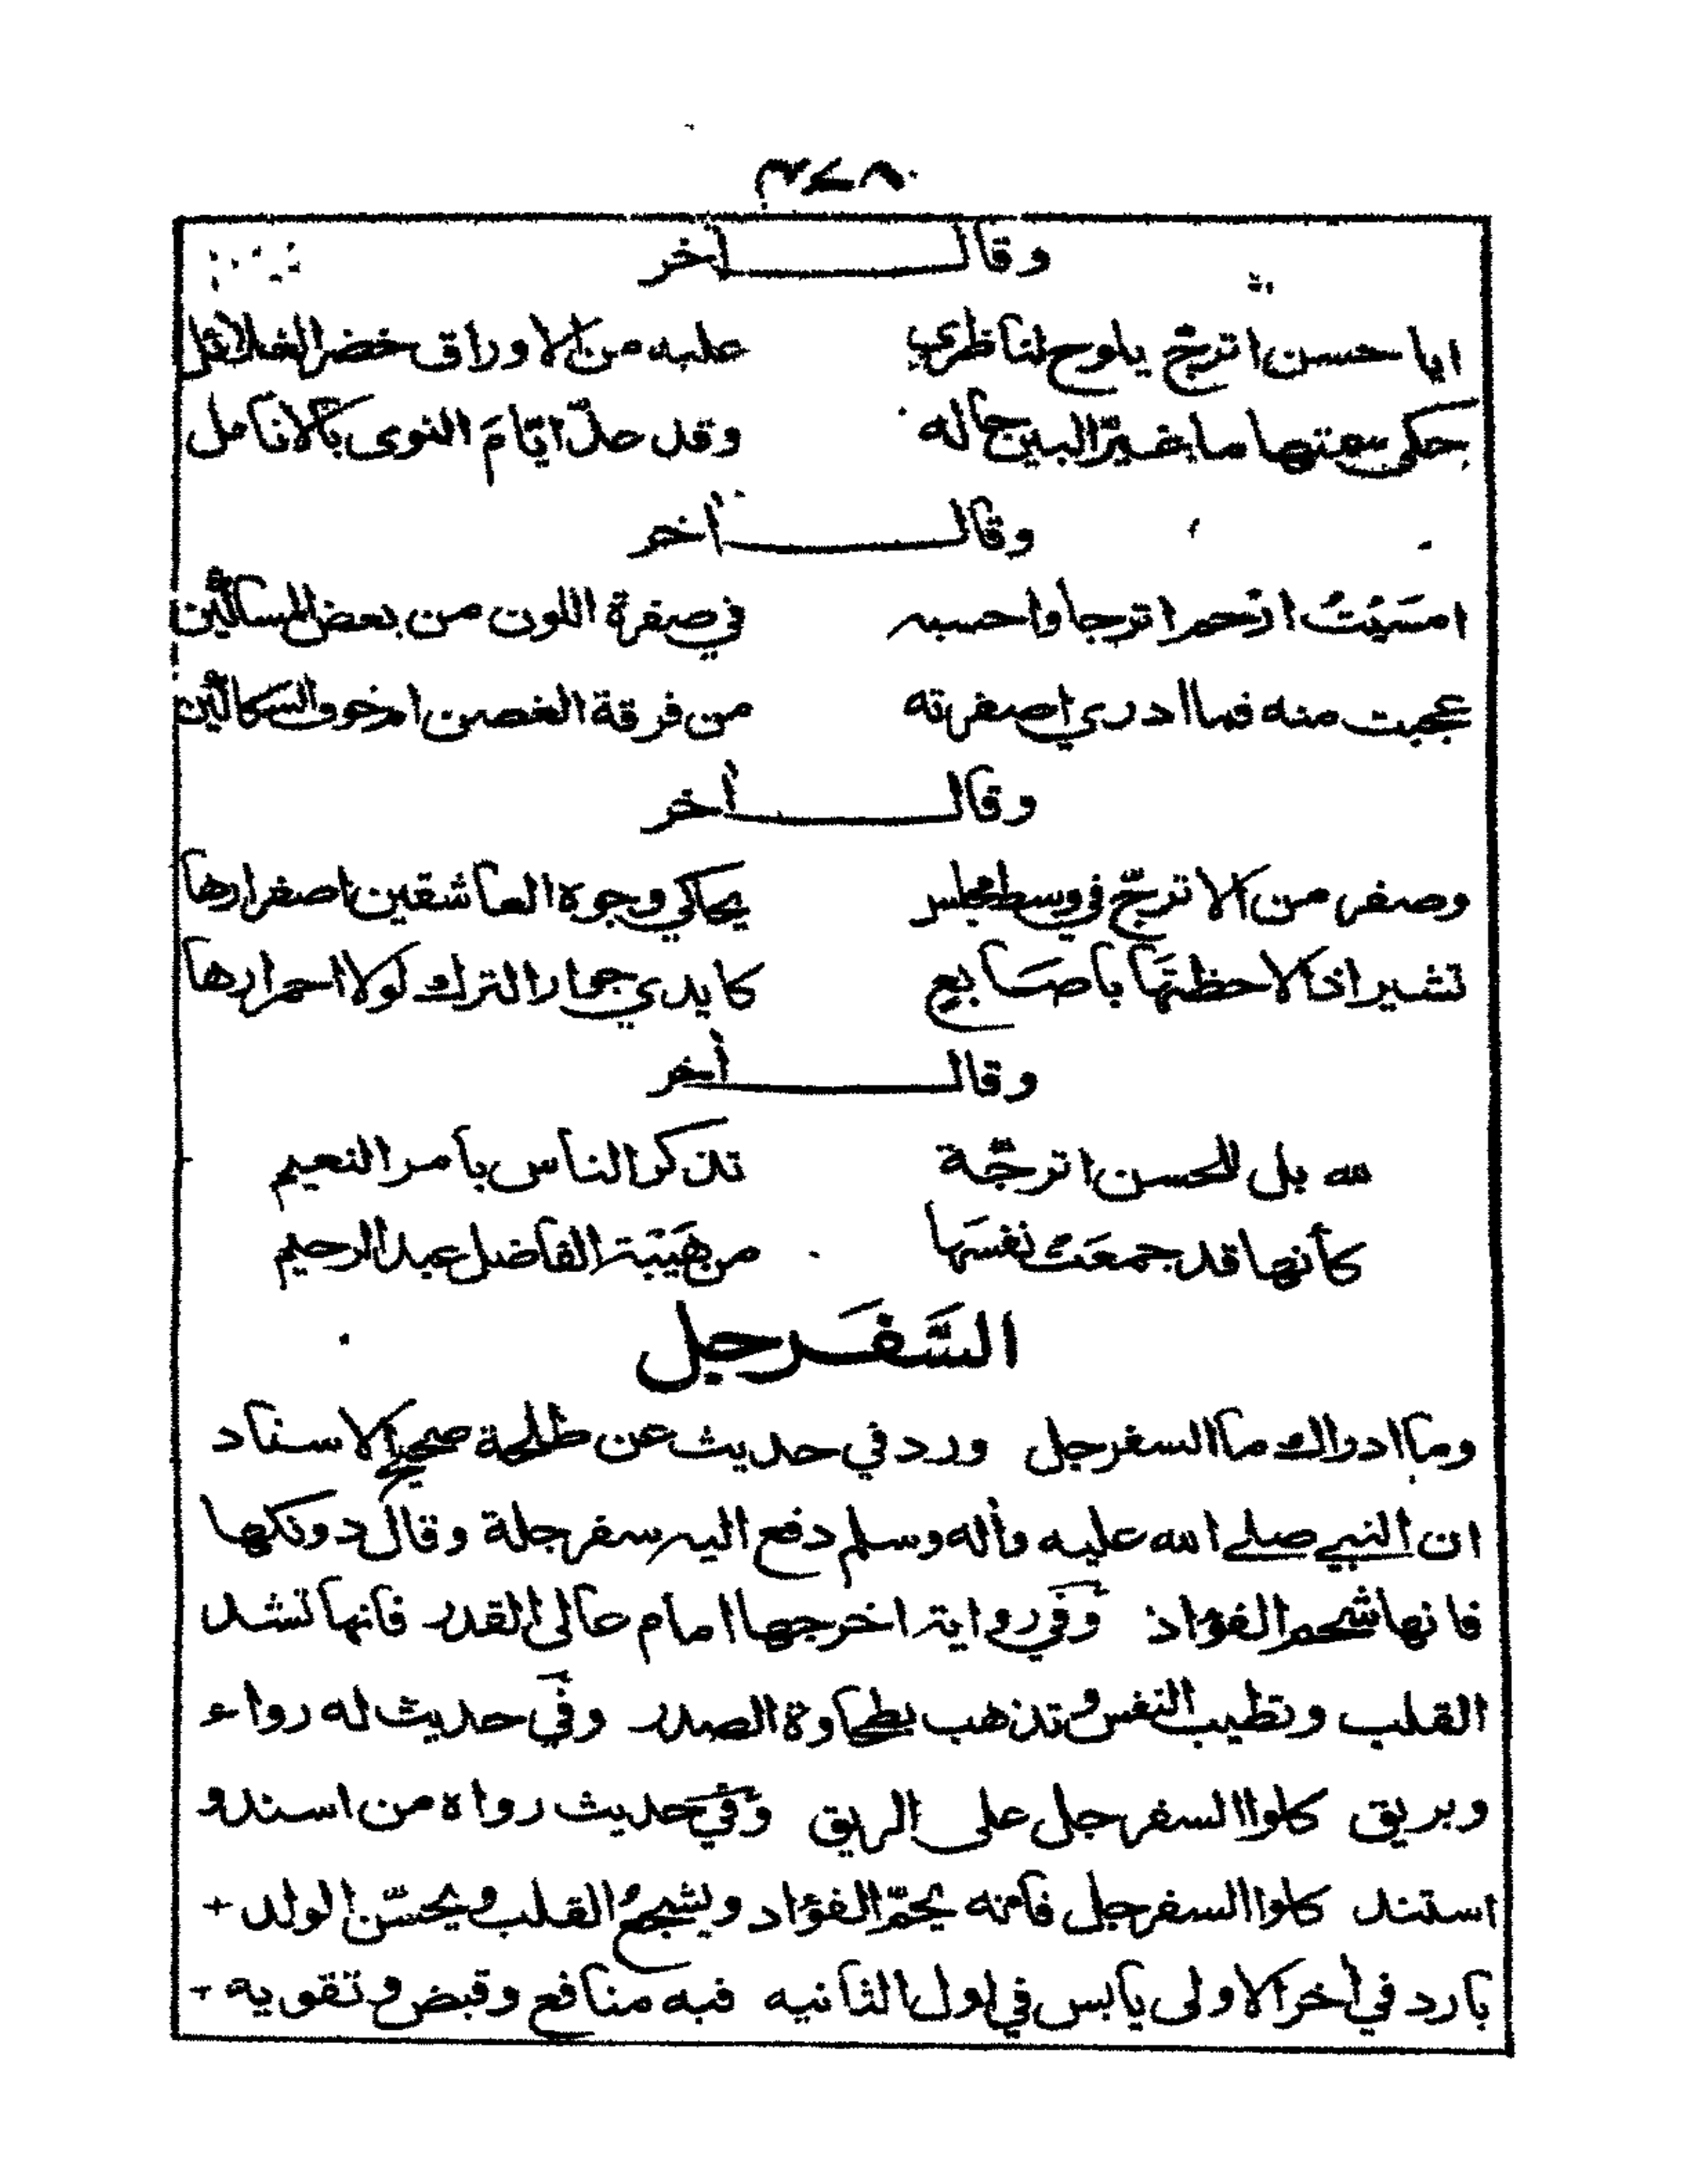 وقال أخر
ايا حسن اترجّ يلوح لناظري عليه من الاوراق خضر الغلائل
حكى سمتها ما غيّر البين حاله وقد حلّ ايّامَ النوى بالانامل
وقال أخر
امسَيْتُ ارْحم اترجا واحسبه في صفرة اللون من بعض المساكين
عجبت منه فما ادري اصفرته من فرقة الغصن ام خوف السكاكين
وقال أخر
وصفر من الاترجّ في وسط مجلس يحاكي وجوه العاشقين اصفرارها
تشير اذا لاحظتَها باصابع كايدي جوار الترك لولا احمرارها
وقال أخر
لله بل للحسن اترجّة تذكر الناس بامر النعيم
كأنها قد جمعَتْ نفسَها من هَيْبَة الفاضل عبد الرحيم
السَّفَرجل
وما ادراك ما السفرجل ورد في حديث عن طلحة صحيح الاسناد
ان النبي صلى الله عليه وأله وسلم دفع اليه سفرجلة وقال دونكها
فانها تشحم الفؤاد وفي رواية اخرجها امام عالى القدر فانها تشد
القلب وتطيب النفس وتذهب بطخاوة الصدر وفي حديث له رواء
وبريق كلوا السفرجل على الريق وفي حديث رواه من اسند و
استند كلوا السفرجل فانه يجمّ الفؤاد ويشجعُ القلب ويحسّن الولد
بارد في أخر الاولى يابس في اول الثانيه فيه منافع وقبض وتقويه